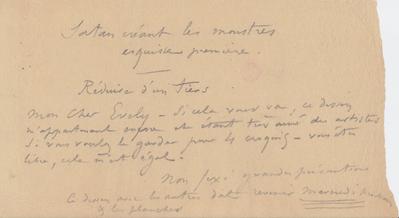 Satan créant les monstres
esquisse première.
Réduire d'un tiers
Mon cher Evely – Si cela vous va, ce dessin
m'appartient encore et étant très aimé des artistes
Si vous voulez le garder pour les croquis – vous êtes
libre, cela m'est égal.
Non fixé grandes précautions
Ce dessin avec les autres doit revenir mercredi
& les planches